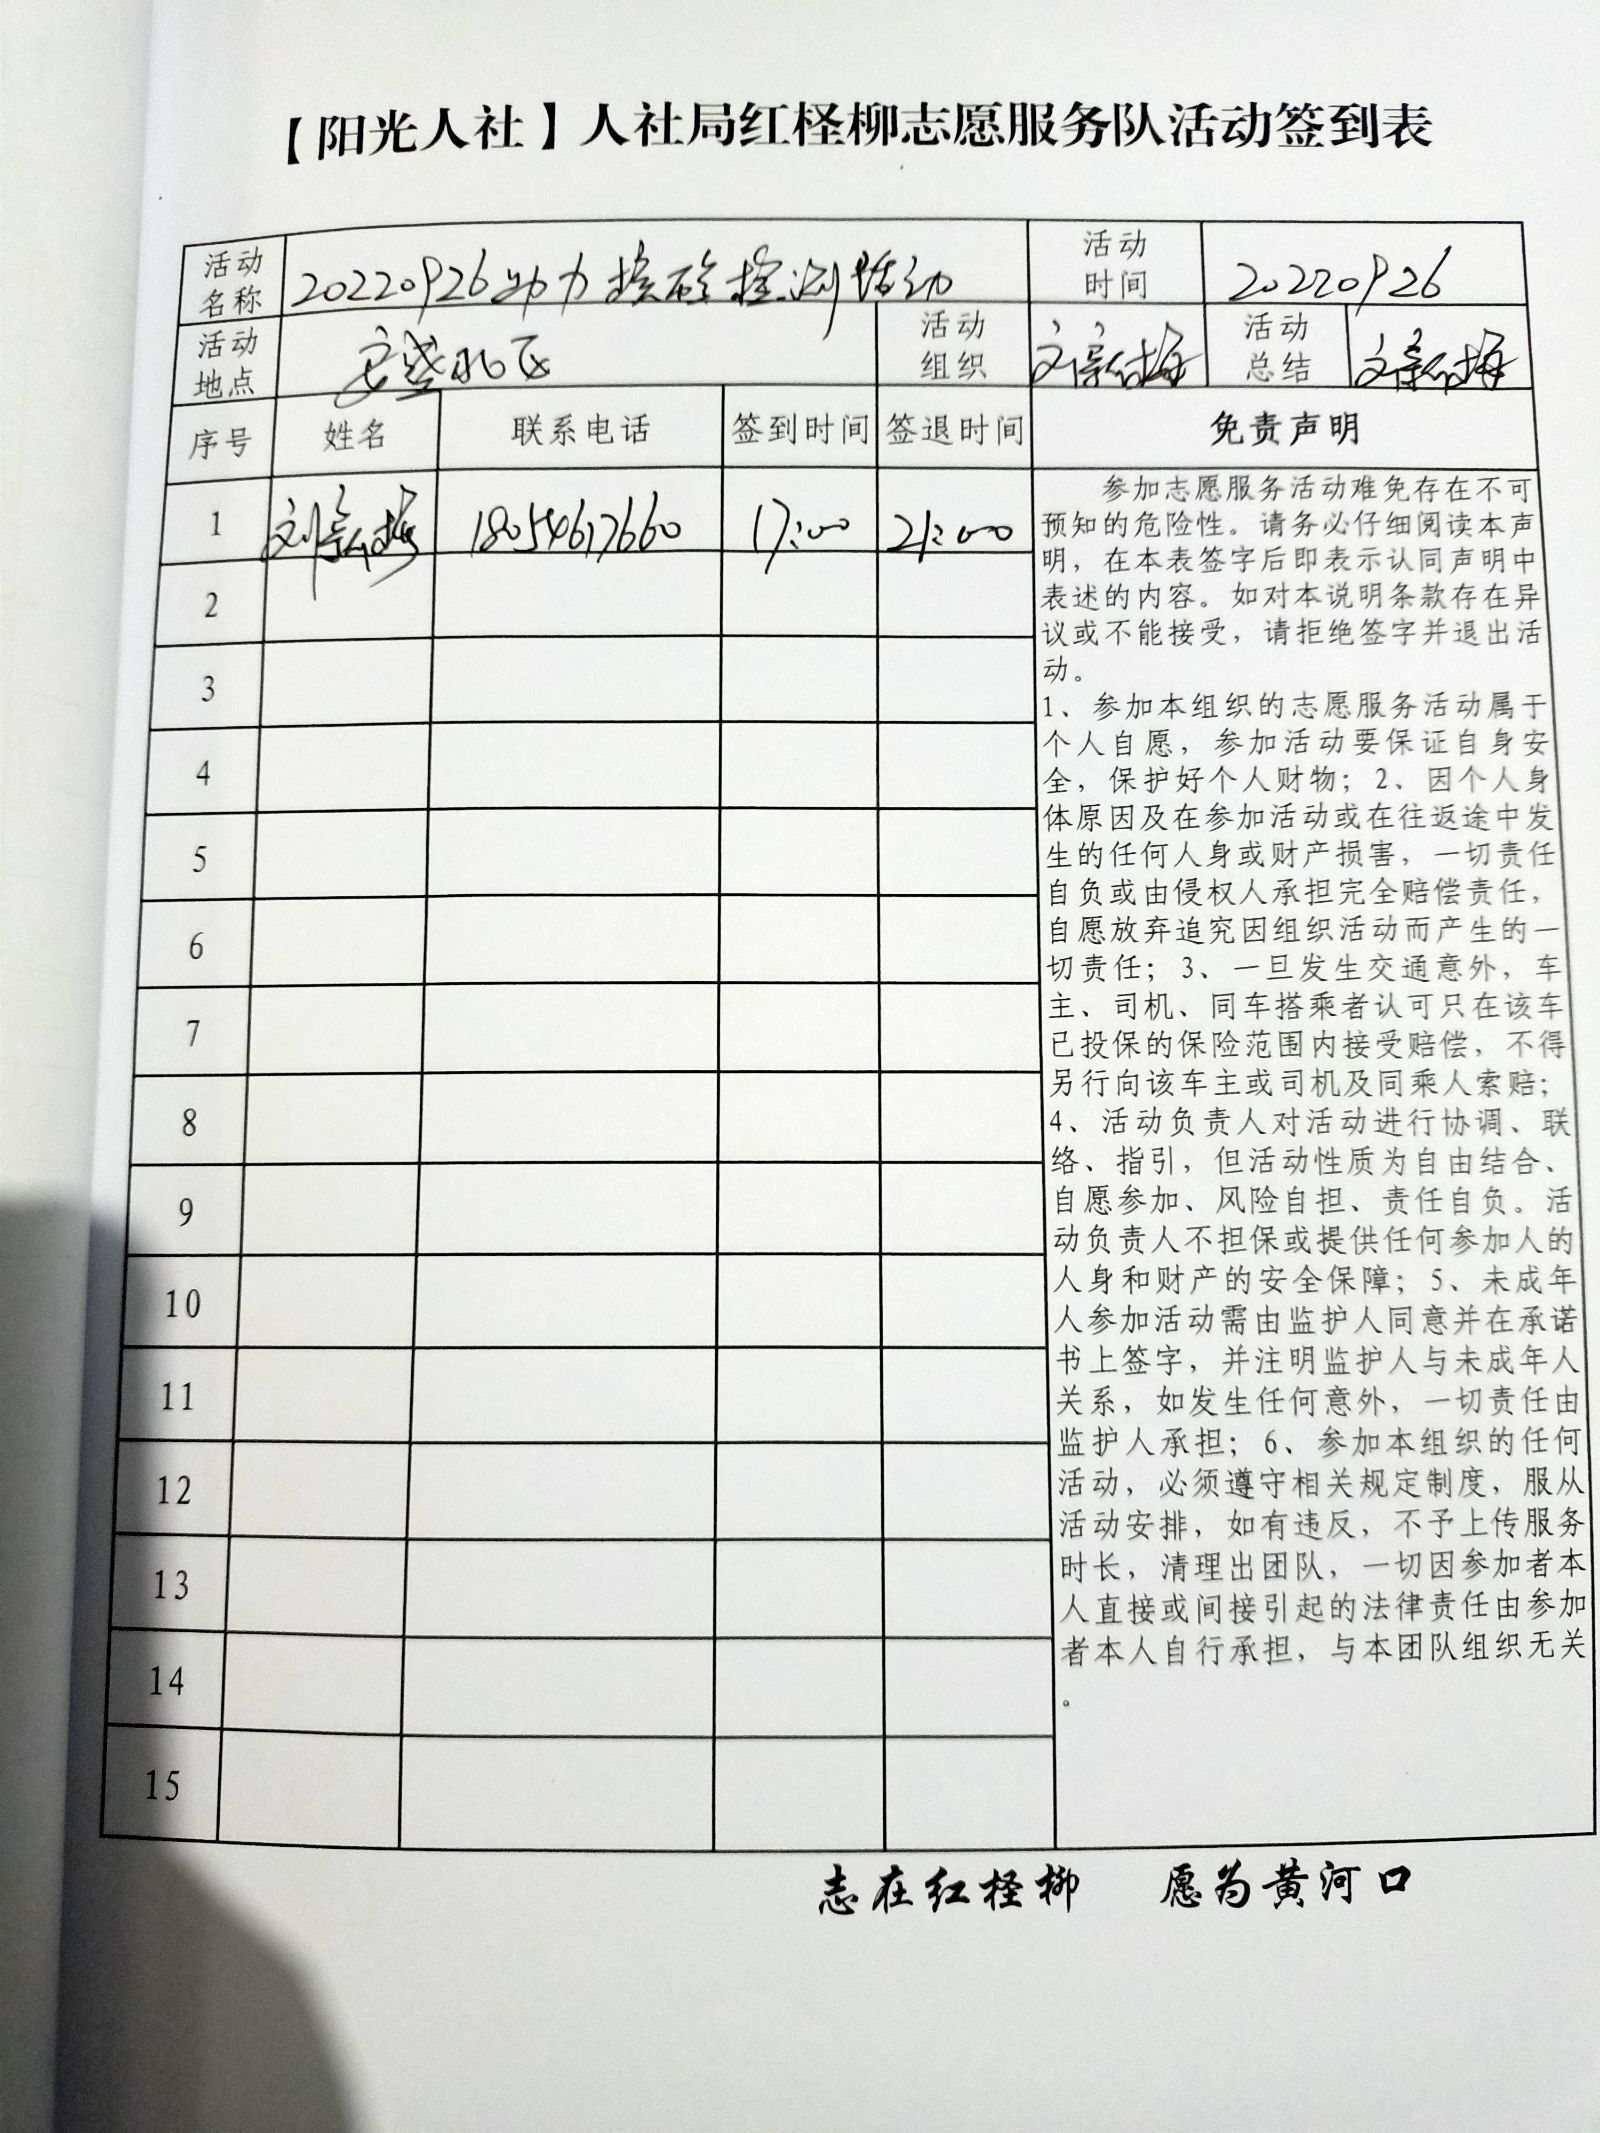 【阳光人社】人社局红柽柳志愿服务队活动签到表
活动名称 20220926助力核酸检测活动 活动时间 20220926
活动地点 安盛北区 活动组织 活动总结
序号 姓名 联系电话 签到时间 签退时间 免责声明
1 18054617660 17:00 21:00
2
3
4
5
6
7
8
9
10
11
12
13
14
15
参加志愿服务活动难免存在不可
预知的危险性。请务必仔细阅读本声
明，在本表签字后即表示认同声明中
表述的内容。如对本说明条款存在异
议或不能接受，请拒绝签字并退出活
动。
1、参加本组织的志愿服务活动属于
个人自愿，参加活动要保证自身安
全，保护好个人财物；2、因个人身
体原因及在参加活动或在往返途中发
生的任何人身或财产损害，一切责任
自负或由侵权人承担完全赔偿责任，
自愿放弃追究因组织活动而产生的一
切责任；3、一旦发生交通意外，车
主、司机、同车搭乘者认可只在该车
已投保的保险范围内接受赔偿，不得
另行向该车主或司机及同乘人索赔；
4、活动负责人对活动进行协调、联
络、指引，但活动性质为自由结合、
自愿参加、风险自担、责任自负。活
动负责人不担保或提供任何参加人的
人身和财产的安全保障；5、未成年
人参加活动需由监护人同意并在承诺
书上签字，并注明监护人与未成年人
关系，如发生任何意外，一切责任由
监护人承担；6、参加本组织的任何
活动，必须遵守相关规定制度，服从
活动安排，如有违反，不予上传服务
时长，清理出团队，一切因参加者本
人直接或间接引起的法律责任由参加
者本人自行承担，与本团队组织无关
。
志在红柽柳 愿为黄河口